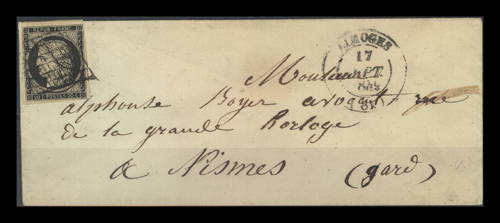 REPUB. FRANC.
20 C POSTES 20 C
LIMOGES
17
SEPT.
Monsieur
alphonse Boyer avocat rue
de la grande horloge
a Nismes (gard)